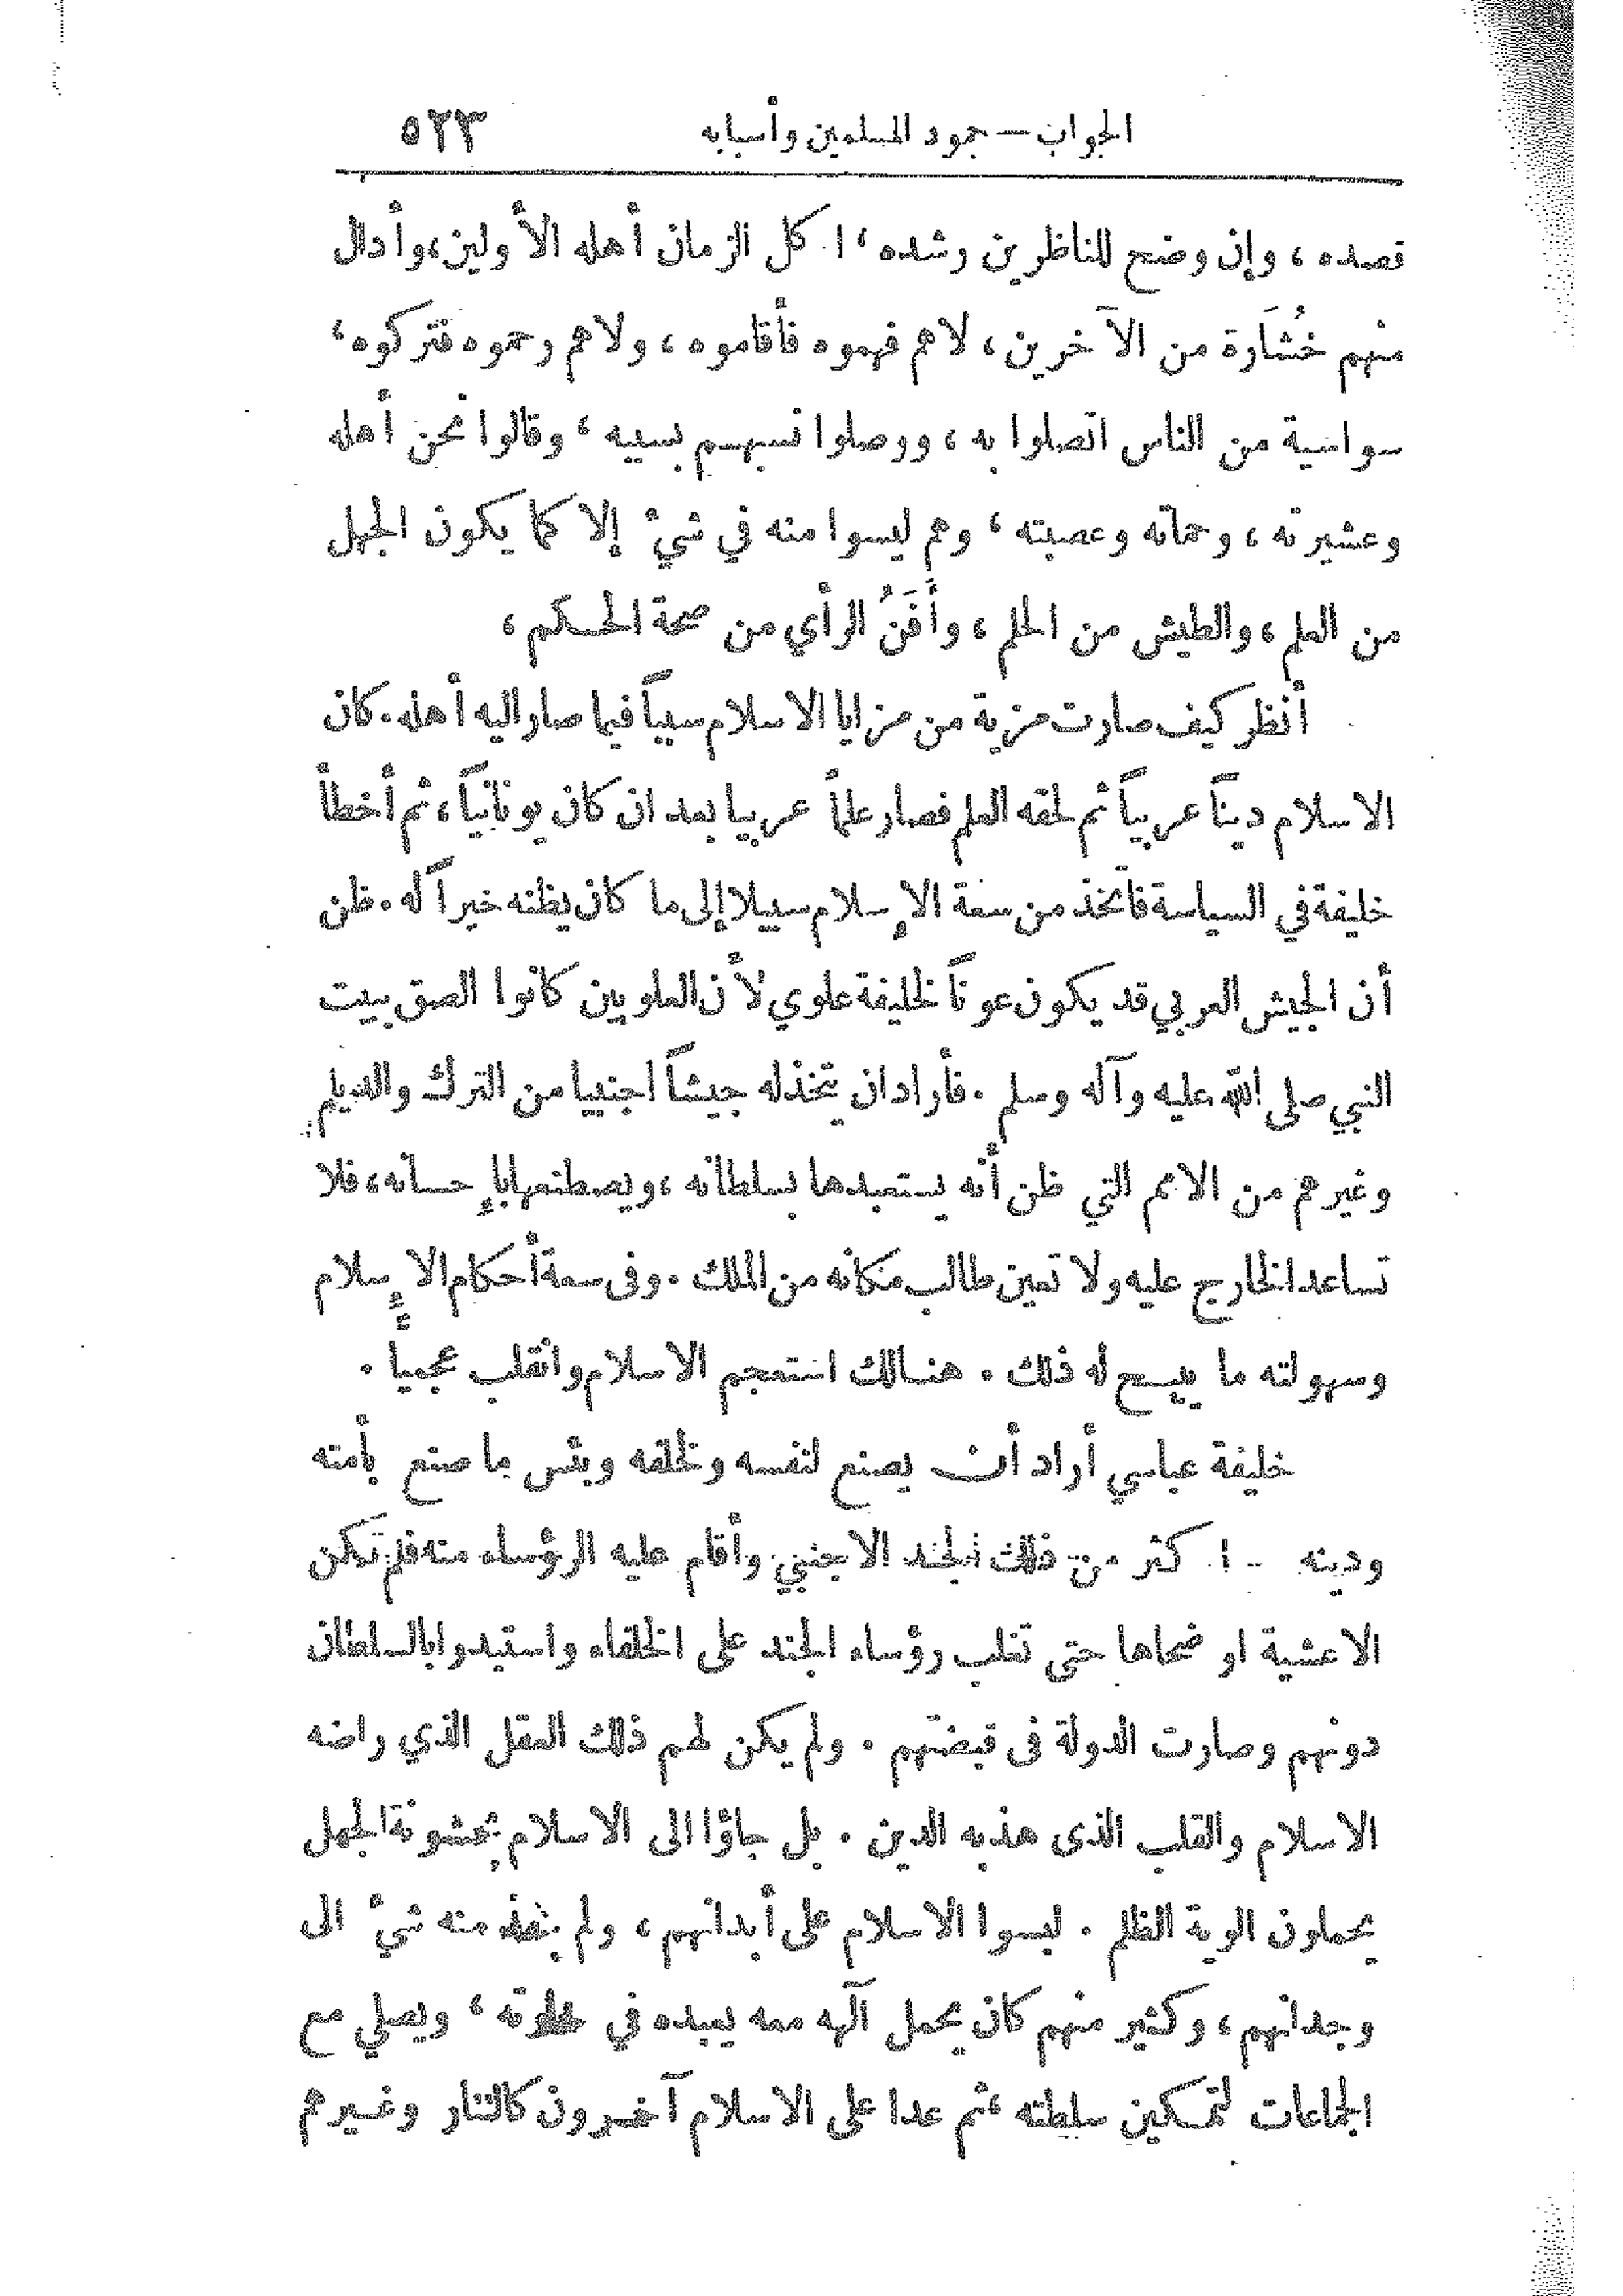 الجواب — جمود المسلمين وأسبابه ٥٢٣
قصده ، وإن وضح للناظرين رشده ، ا كل الزمان أهله الأولين، وأدال
منهم خُشَارة من الآخرين ، لاهم فهموه فأقاموه ، ولاهم رحموه فتركوه ،
سواسية من الناس اتصلوا به ، ووصلوا نسبهم بسببه ، وقالوا نحن أهله
وعشيرته ، وحماته وعصبته ، وهم ليسوا منه في شيءٍ إلا كما يكون الجهل
من العلم ، والطيش من الحلم ، وأَفَنُ الرأي من صحة الحكم ،
أنظر كيف صارت مزية من مزايا الاسلام سبباً فيما صار اليه أهله . كان
الاسلام ديناً عربياً ثم لحقه العلم فصار علماً عربيا بعد ان كان يونانياً ، ثم أخطأ
خليفة في السياسة فاتخذ من سعة الإسلام سبيلا إلى ما كان يظنه خيراً له . ظن
أن الجيش العربي قد يكون عوناً لخليفة علوي لأن العلويين كانوا الصق ببيت
النبي صلى الله عليه وآله وسلم . فأراد ان يتخذ له جيشاً اجنبيا من الترك والديلم
وغيرهم من الامم التي ظن أنه يستعبدها بسلطانه ، ويصطنعها بإحسانه ، فلا
تساعد الخارج عليه ولا تعين طالب مكانه من الملك . وفى سعة أحكام الإسلام
وسهولته ما يبيح له ذلك . هنالك استعجم الاسلام وانقلب عجمياً .
خليفة عباسي أراد أن يصنع لنفسه ولخلفه وبئس ما صنع بأمته
ودينه - ا كثر من ذلك الجند الاجنبي وأقام عليه الرؤساء منه فلم تكن
الا عشية او ضحاها حتى تغلب رؤساء الجند على الخلفاء واستبدوا بالسلطان
دونهم وصارت الدولة فى قبضتهم . ولم يكن لهم ذلك العقل الذي راضه
الاسلام والقلب الذى هذبه الدين . بل جاؤا الى الاسلام بخشونة الجهل
يحملون الوية الظلم . لبسوا الاسلام على أبدانهم ، ولم ينفذ منه شيءٌ الى
وجدانهم ، وكثير منهم كان يحمل آلهه معه يعبده في خلوته ، ويصلي مع
الجماعات لتمكين سلطته ، ثم عدا على الاسلام آخرون كالتتار وغيرهم